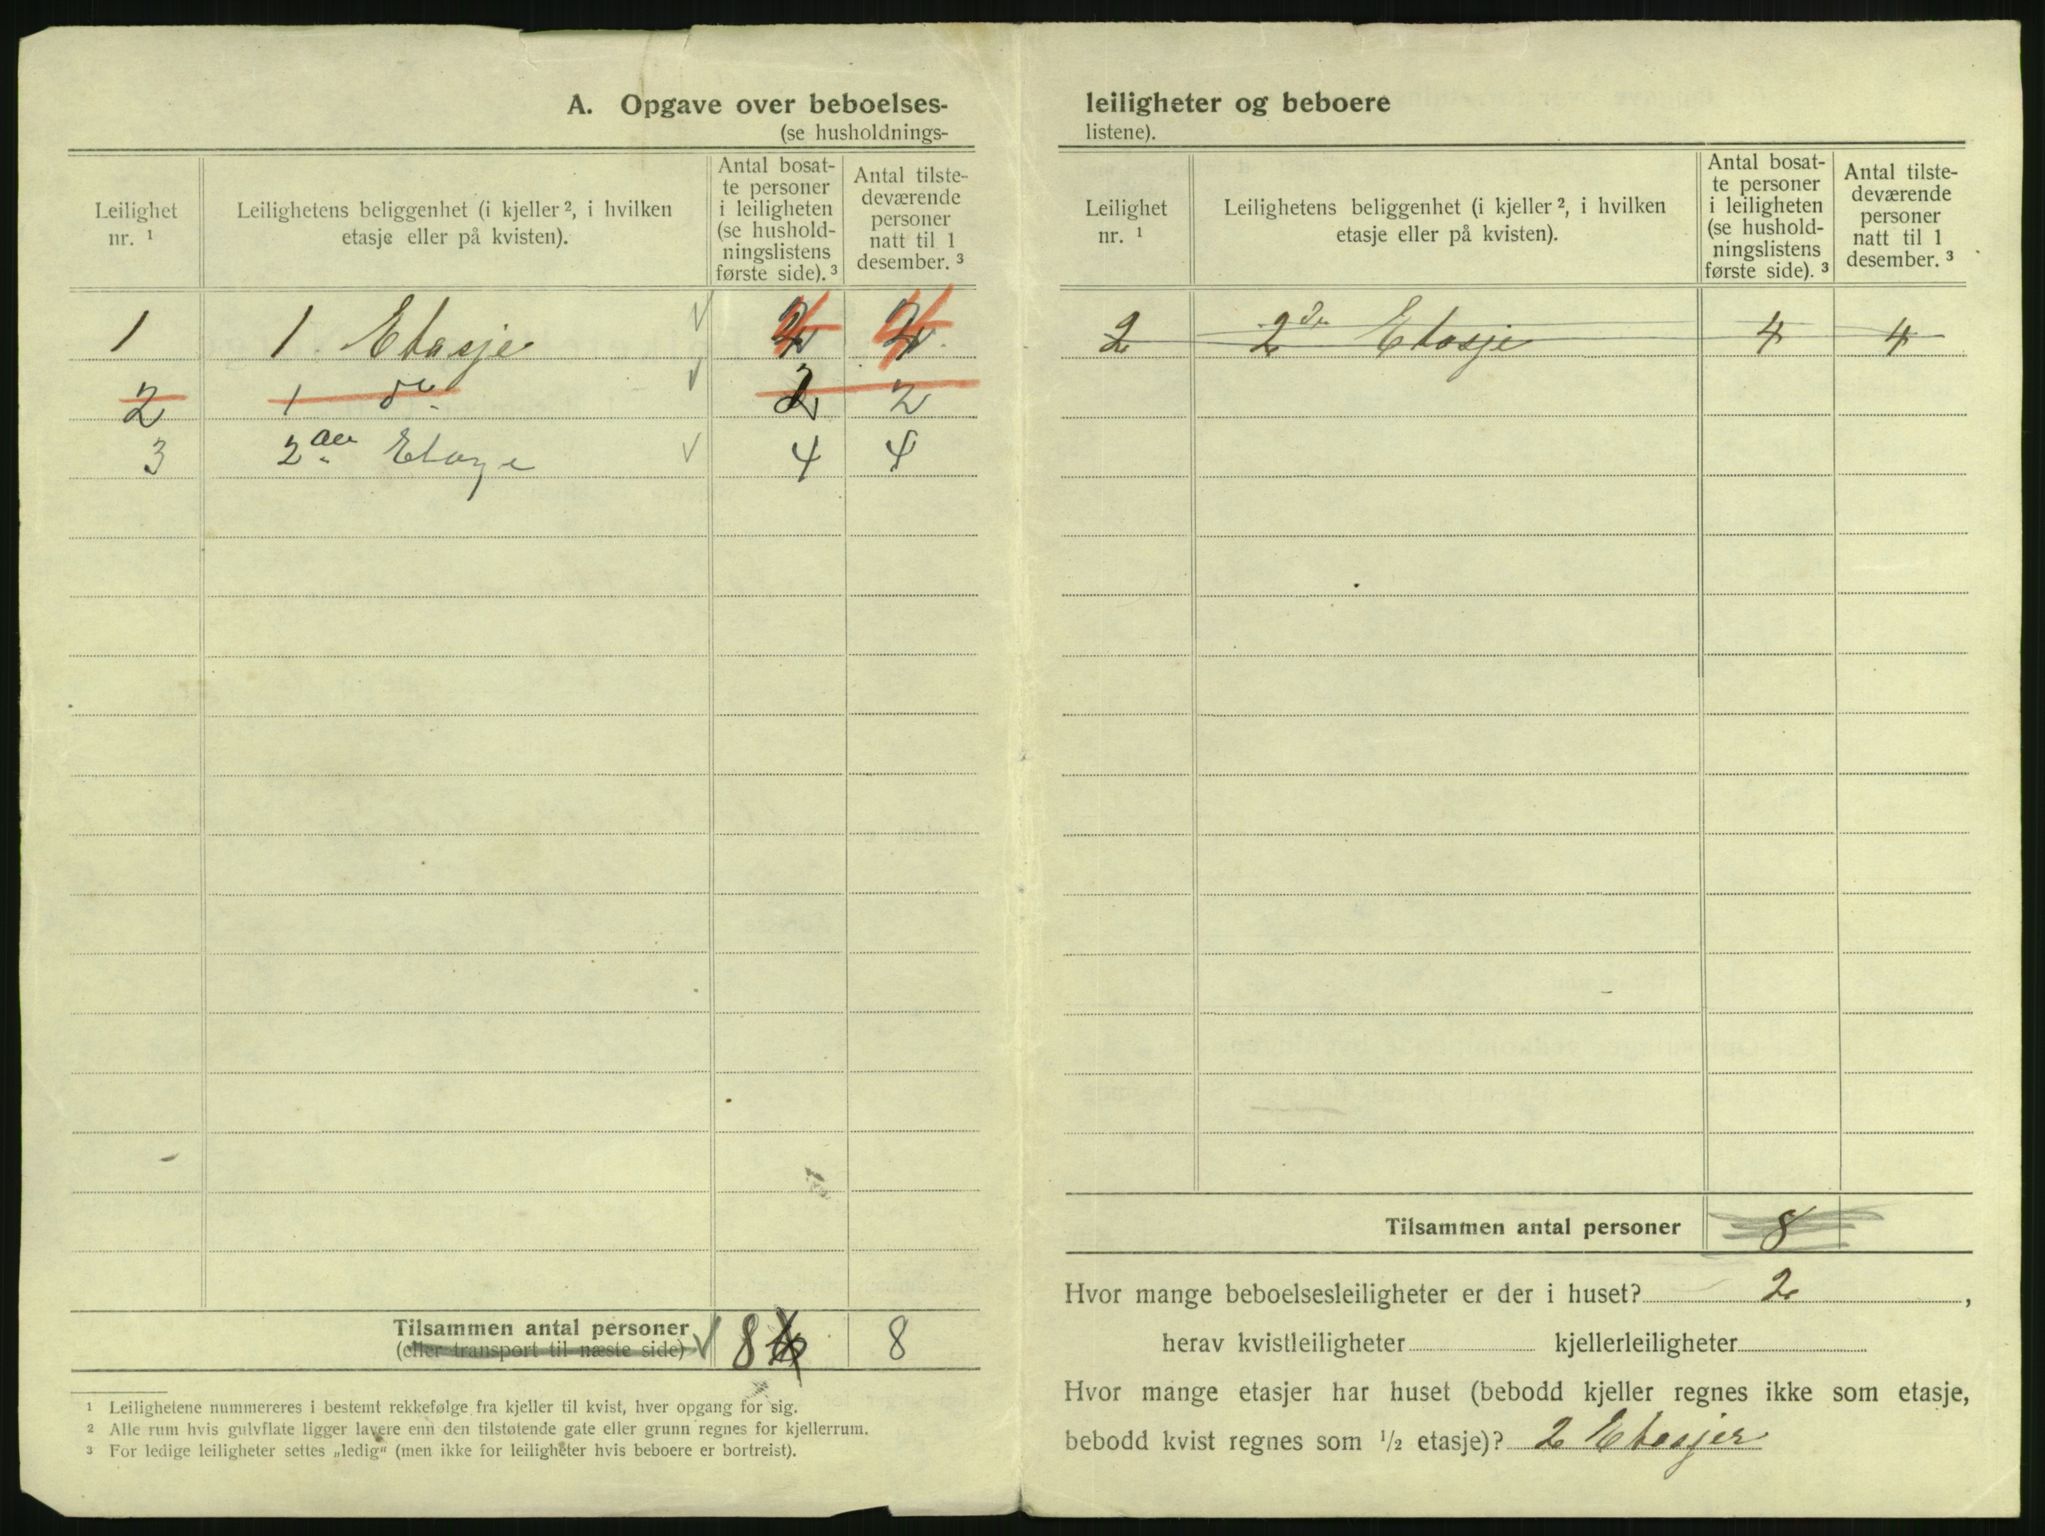 A. Opgave over beboelses-
(se husholdnings-
Leilighet
nr. ¹
Leilighetens beliggenhet (i kjeller ², i hvilken
etasje eller på kvisten).
Antal bosat-
te personer
i leiligheten
(se hushold-
ningslistens
første side). ³
Antal tilste-
deværende
personer
natt til 1
desember. ³
1 1. Etasje 4 4
2 1 do 2 2
3 2den Etage 4 4
Tilsammen antal personer 8 8
(eller transport til næste side)
¹ Leilighetene nummereres i bestemt rekkefølge fra kjeller til kvist, hver opgang for sig.
² Alle rum hvis gulvflate ligger lavere enn den tilstøtende gate eller grunn regnes for kjellerrum.
³ For ledige leiligheter settes „ledig“ (men ikke for leiligheter hvis beboere er bortreist).
leiligheter og beboere
listene).
Leilighet
nr. ¹
Leilighetens beliggenhet (i kjeller ², i hvilken
etasje eller på kvisten).
Antal bosat-
te personer
i leiligheten
(se hushold-
ningslistens
første side). ³
Antal tilste-
deværende
personer
natt til 1
desember. ³
2 2dn Etasje 4 4
Tilsammen antal personer 8
Hvor mange beboelsesleiligheter er der i huset? 2,
herav kvistleiligheter kjellerleiligheter
Hvor mange etasjer har huset (bebodd kjeller regnes ikke som etasje,
bebodd kvist regnes som ½ etasje)? 2 Etasjer